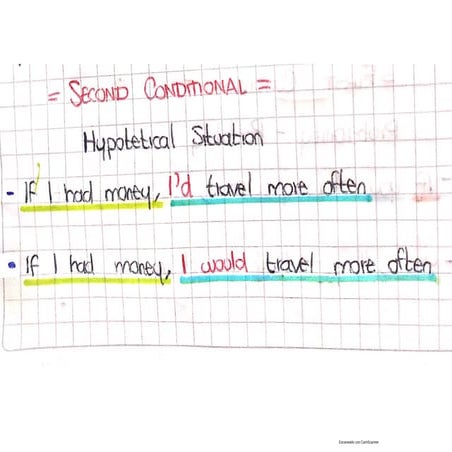 = SECOND CONDITIONAL =
Hypotetical Situation
- If I had money, I'd travel more often
• If I had money, I would travel more often
Scanned with CamScanner